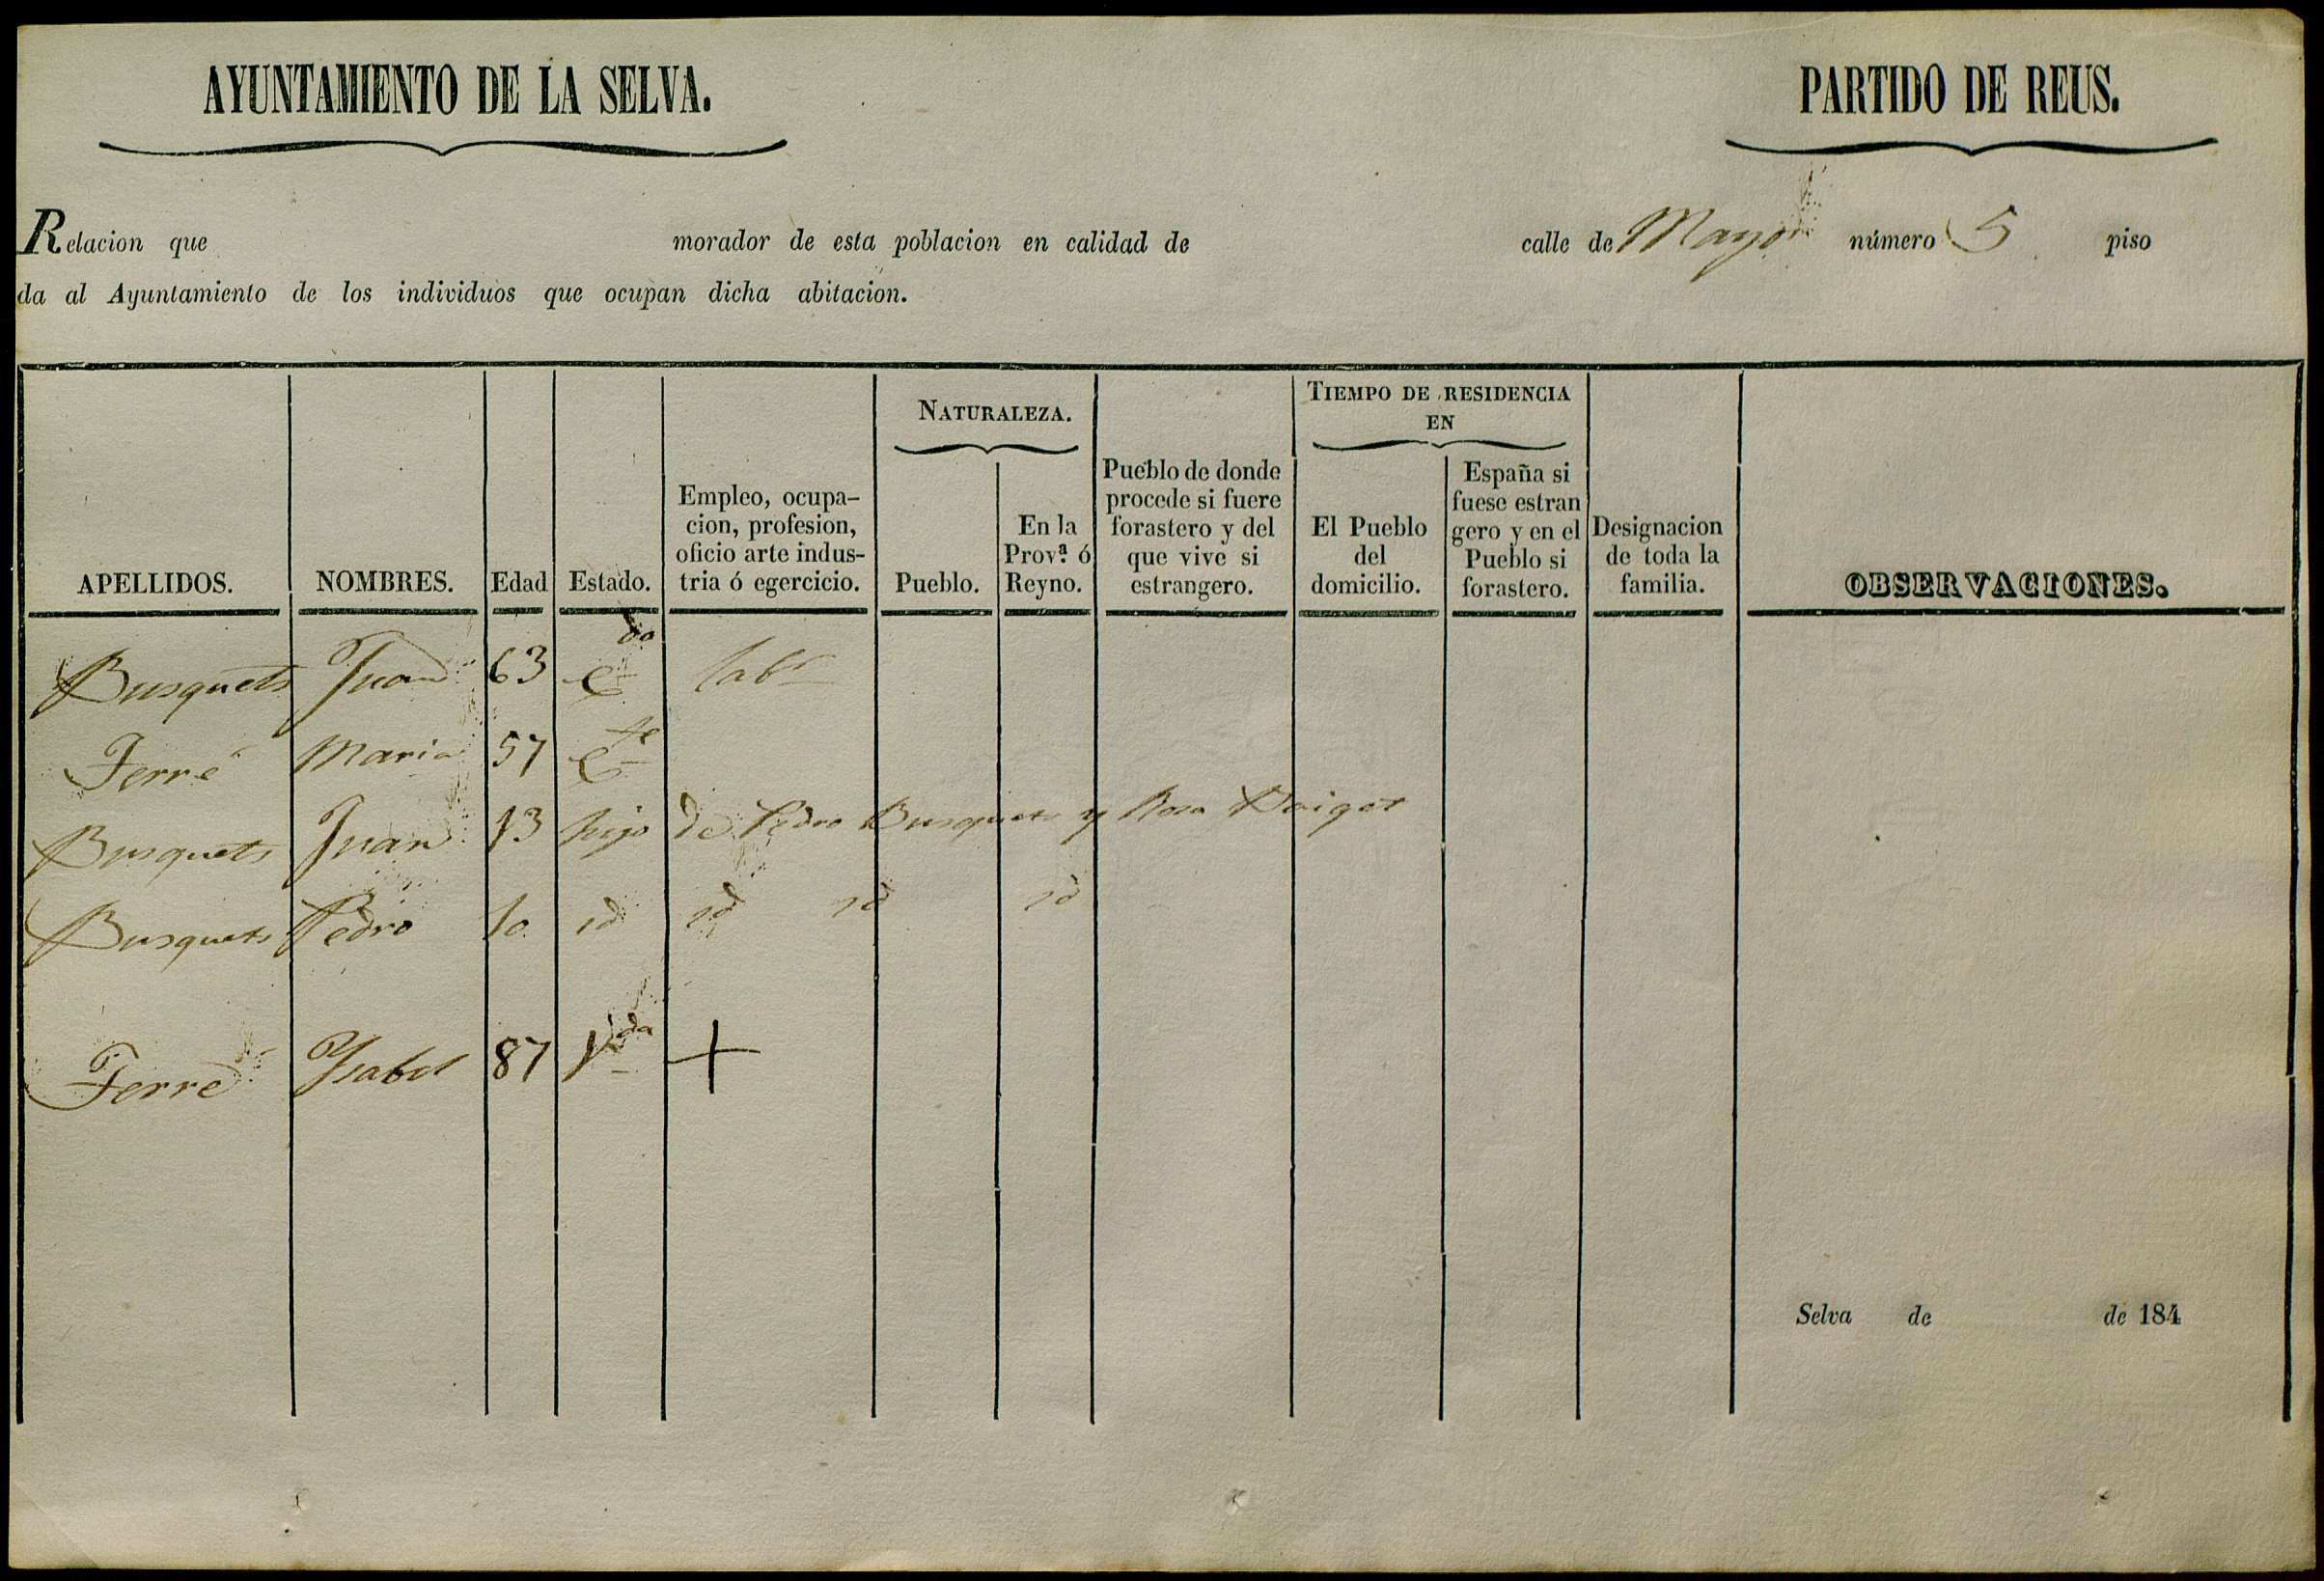 AYUNTAMIENTO DE LA SELVA.
PARTIDO DE REUS.
Relacion que morador de esta poblacion en calidad de calle de Mayor número 5 piso
da al Ayuntamiento de los individuos que ocupan dicha abitacion.
APELLIDOS.
NOMBRES.
Edad
Estado.
Empleo, ocupa-
cion, profesion,
oficio arte indus-
tria ó egercicio.
NATURALEZA.
Pueblo.
En la
Prov.ª ó
Reyno.
Pueblo de donde
procede si fuere
forastero y del
que vive si
estrangero.
TIEMPO DE RESIDENCIA
EN
El Pueblo
del
domicilio.
España si
fuese estran
gero y en el
Pueblo si
forastero.
Designacion
de toda la
familia.
OBSERVACIONES.
Busquets Juan 63 C.do labr
Ferré Maria 57 C.
Busquets Juan 13 hijo de Pedro Busquets y Rosa
Busquets Pedro 10 id id id id
Ferré Ysabel 87 V.da +
Selva de de 184